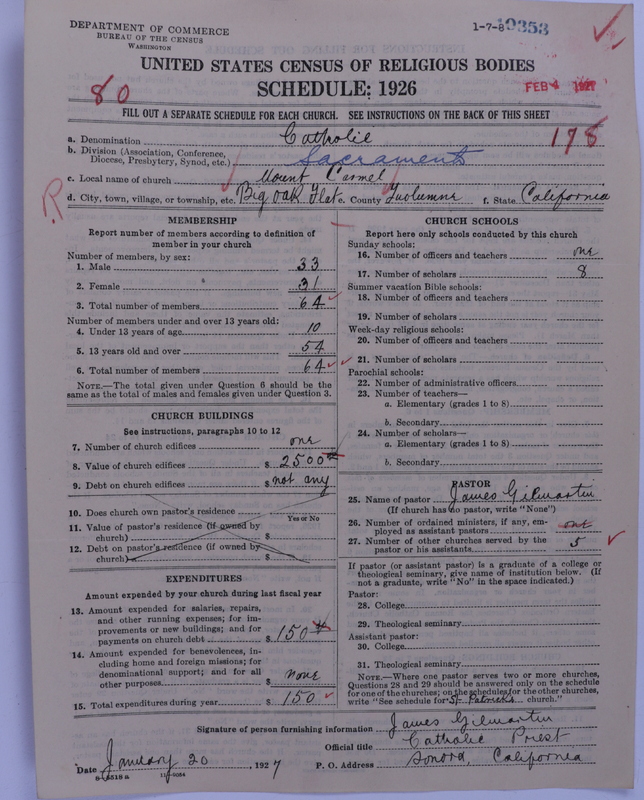 DEPARTMENT OF COMMERCE
BUREAU OF THE CENSUS
WASHINGTON
1-7-8 19353
UNITED STATES CENSUS OF RELIGIOUS BODIES
SCHEDULE: 1926
80
FEB 4 1927
FILL OUT A SEPARATE SCHEDULE FOR EACH CHURCH. SEE INSTRUCTIONS ON THE BACK OF THIS SHEET
a. Denomination Catholic 178
b. Division (Association, Conference, Diocese, Presbytery, Synod, etc.) Sacramento
c. Local name of church Mount Carmel
R
d. City, town, village, or township, etc. Big Oak Flat e. County Tuolumne f. State California
MEMBERSHIP
Report number of members according to definition of
member in your church
Number of members, by sex:
1. Male 33
2. Female 31
3. Total number of members 64
Number of members under and over 13 years old:
4. Under 13 years of age 10
5. 13 years old and over 54
6. Total number of members 64
NOTE.—The total given under Question 6 should be the
same as the total of males and females given under Question 3.
CHURCH BUILDINGS
See instructions, paragraphs 10 to 12
7. Number of church edifices one
8. Value of church edifices $ 2500
9. Debt on church edifices $ not any
10. Does church own pastor's residence
Yes or No
11. Value of pastor's residence (if owned by
church) $
12. Debt on pastor's residence (if owned by
church) $
EXPENDITURES
Amount expended by your church during last fiscal year
13. Amount expended for salaries, repairs,
and other running expenses; for im-
provements or new buildings; and for
payments on church debt $ 150
14. Amount expended for benevolences, in-
cluding home and foreign missions; for
denominational support; and for all
other purposes $ none
15. Total expenditures during year $ 150
CHURCH SCHOOLS
Report here only schools conducted by this church
Sunday schools:
16. Number of officers and teachers one
17. Number of scholars 8
Summer vacation Bible schools:
18. Number of officers and teachers
19. Number of scholars
Week-day religious schools:
20. Number of officers and teachers
21. Number of scholars
Parochial schools:
22. Number of administrative officers
23. Number of teachers—
a. Elementary (grades 1 to 8)
b. Secondary
24. Number of scholars—
a. Elementary (grades 1 to 8)
b. Secondary
PASTOR
25. Name of pastor James Gilmartin
(If church has no pastor, write "None")
26. Number of ordained ministers, if any, em-
ployed as assistant pastors one
27. Number of other churches served by the
pastor or his assistants 5
If pastor (or assistant pastor) is a graduate of a college or
theological seminary, give name of institution below. (If
not a graduate, write "No" in the space indicated.)
Pastor:
28. College
29. Theological seminary
Assistant pastor:
30. College
31. Theological seminary
NOTE.—Where one pastor serves two or more churches,
Questions 28 and 29 should be answered only on the schedule
for one of the churches; on the schedules for the other churches,
write "See schedule for St Patricks church."
Signature of person furnishing information James Gilmartin
Official title Catholic Priest
Date January 20, 1927 P. O. Address Sonora, California